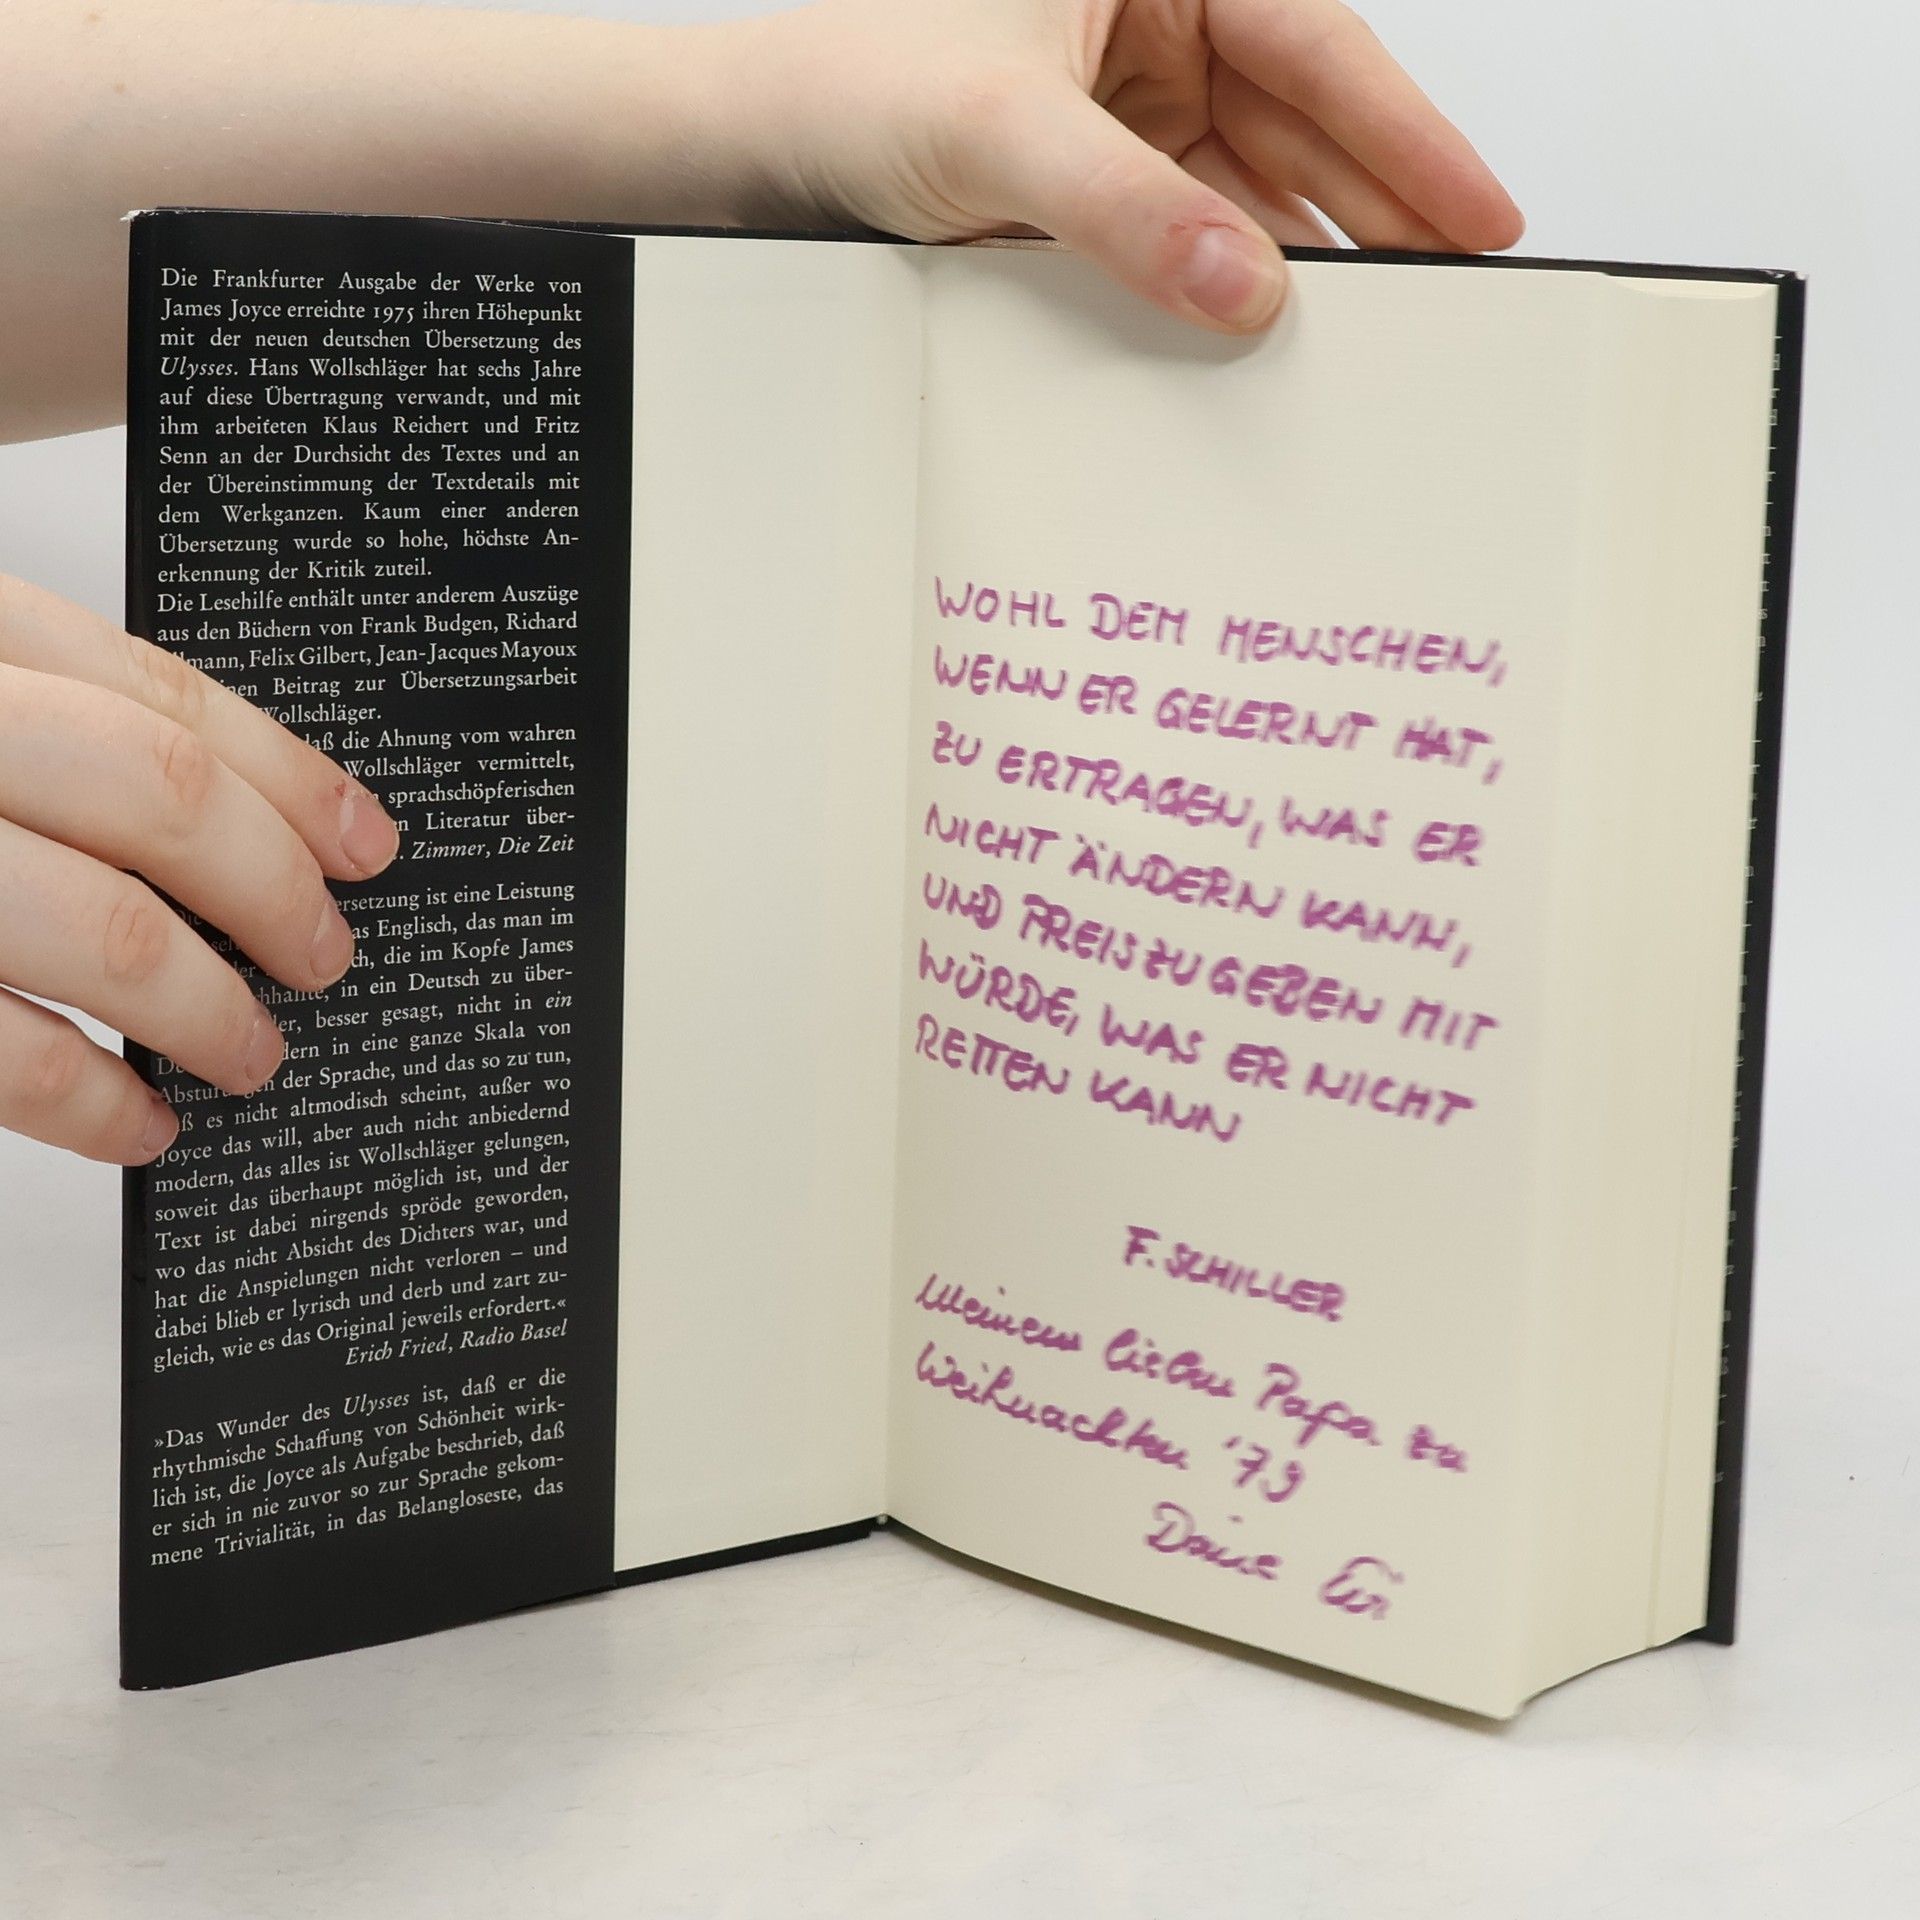 Die Frankfurter Ausgabe der Werke von
James Joyce erreichte 1975 ihren Höhepunkt
mit der neuen deutschen Übersetzung des
Ulysses. Hans Wollschläger hat sechs Jahre
auf diese Übertragung verwandt, und mit
ihm arbeiteten Klaus Reichert und Fritz
Senn an der Durchsicht des Textes und an
der Übereinstimmung der Textdetails mit
dem Werkganzen. Kaum einer anderen
Übersetzung wurde so hohe, höchste An-
erkennung der Kritik zuteil.
Die Lesehilfe enthält unter anderem Auszüge
aus den Büchern von Frank Budgen, Richard
mann, Felix Gilbert, Jean-Jacques Mayoux
Beitrag zur Übersetzungsarbeit
Wollschläger.
die Ahnung vom wahren
Wollschläger vermittelt,
sprachschöpferischen
Literatur über-
Zimmer, Die Zeit
ersetzung ist eine Leistung
as Englisch, das man im
ch, die im Kopfe James
in ein Deutsch zu über-
er, besser gesagt, nicht in ein
dern in eine ganze Skala von
der Sprache, und das so zu tun,
es nicht altmodisch scheint, außer wo
Joyce das will, aber auch nicht anbiedernd
modern, das alles ist Wollschläger gelungen,
soweit das überhaupt möglich ist, und der
Text ist dabei nirgends spröde geworden,
wo das nicht Absicht des Dichters war, und
hat die Anspielungen nicht verloren – und
dabei blieb er lyrisch und derb und zart zu-
gleich, wie es das Original jeweils erfordert.«
Erich Fried, Radio Basel
»Das Wunder des Ulysses ist, daß er die
rhythmische Schaffung von Schönheit wirk-
lich ist, die Joyce als Aufgabe beschrieb, daß
er sich in nie zuvor so zur Sprache gekom-
mene Trivialität, in das Belangloseste, das
WOHL DEM MENSCHEN,
WENN ER GELERNT HAT,
ZU ERTRAGEN, WAS ER
NICHT ÄNDERN KANN,
UND PREISZUGEBEN MIT
WÜRDE, WAS ER NICHT
RETTEN KANN
F. SCHILLER
Meinem lieben Papa zu
Weihnachten '79
Deine